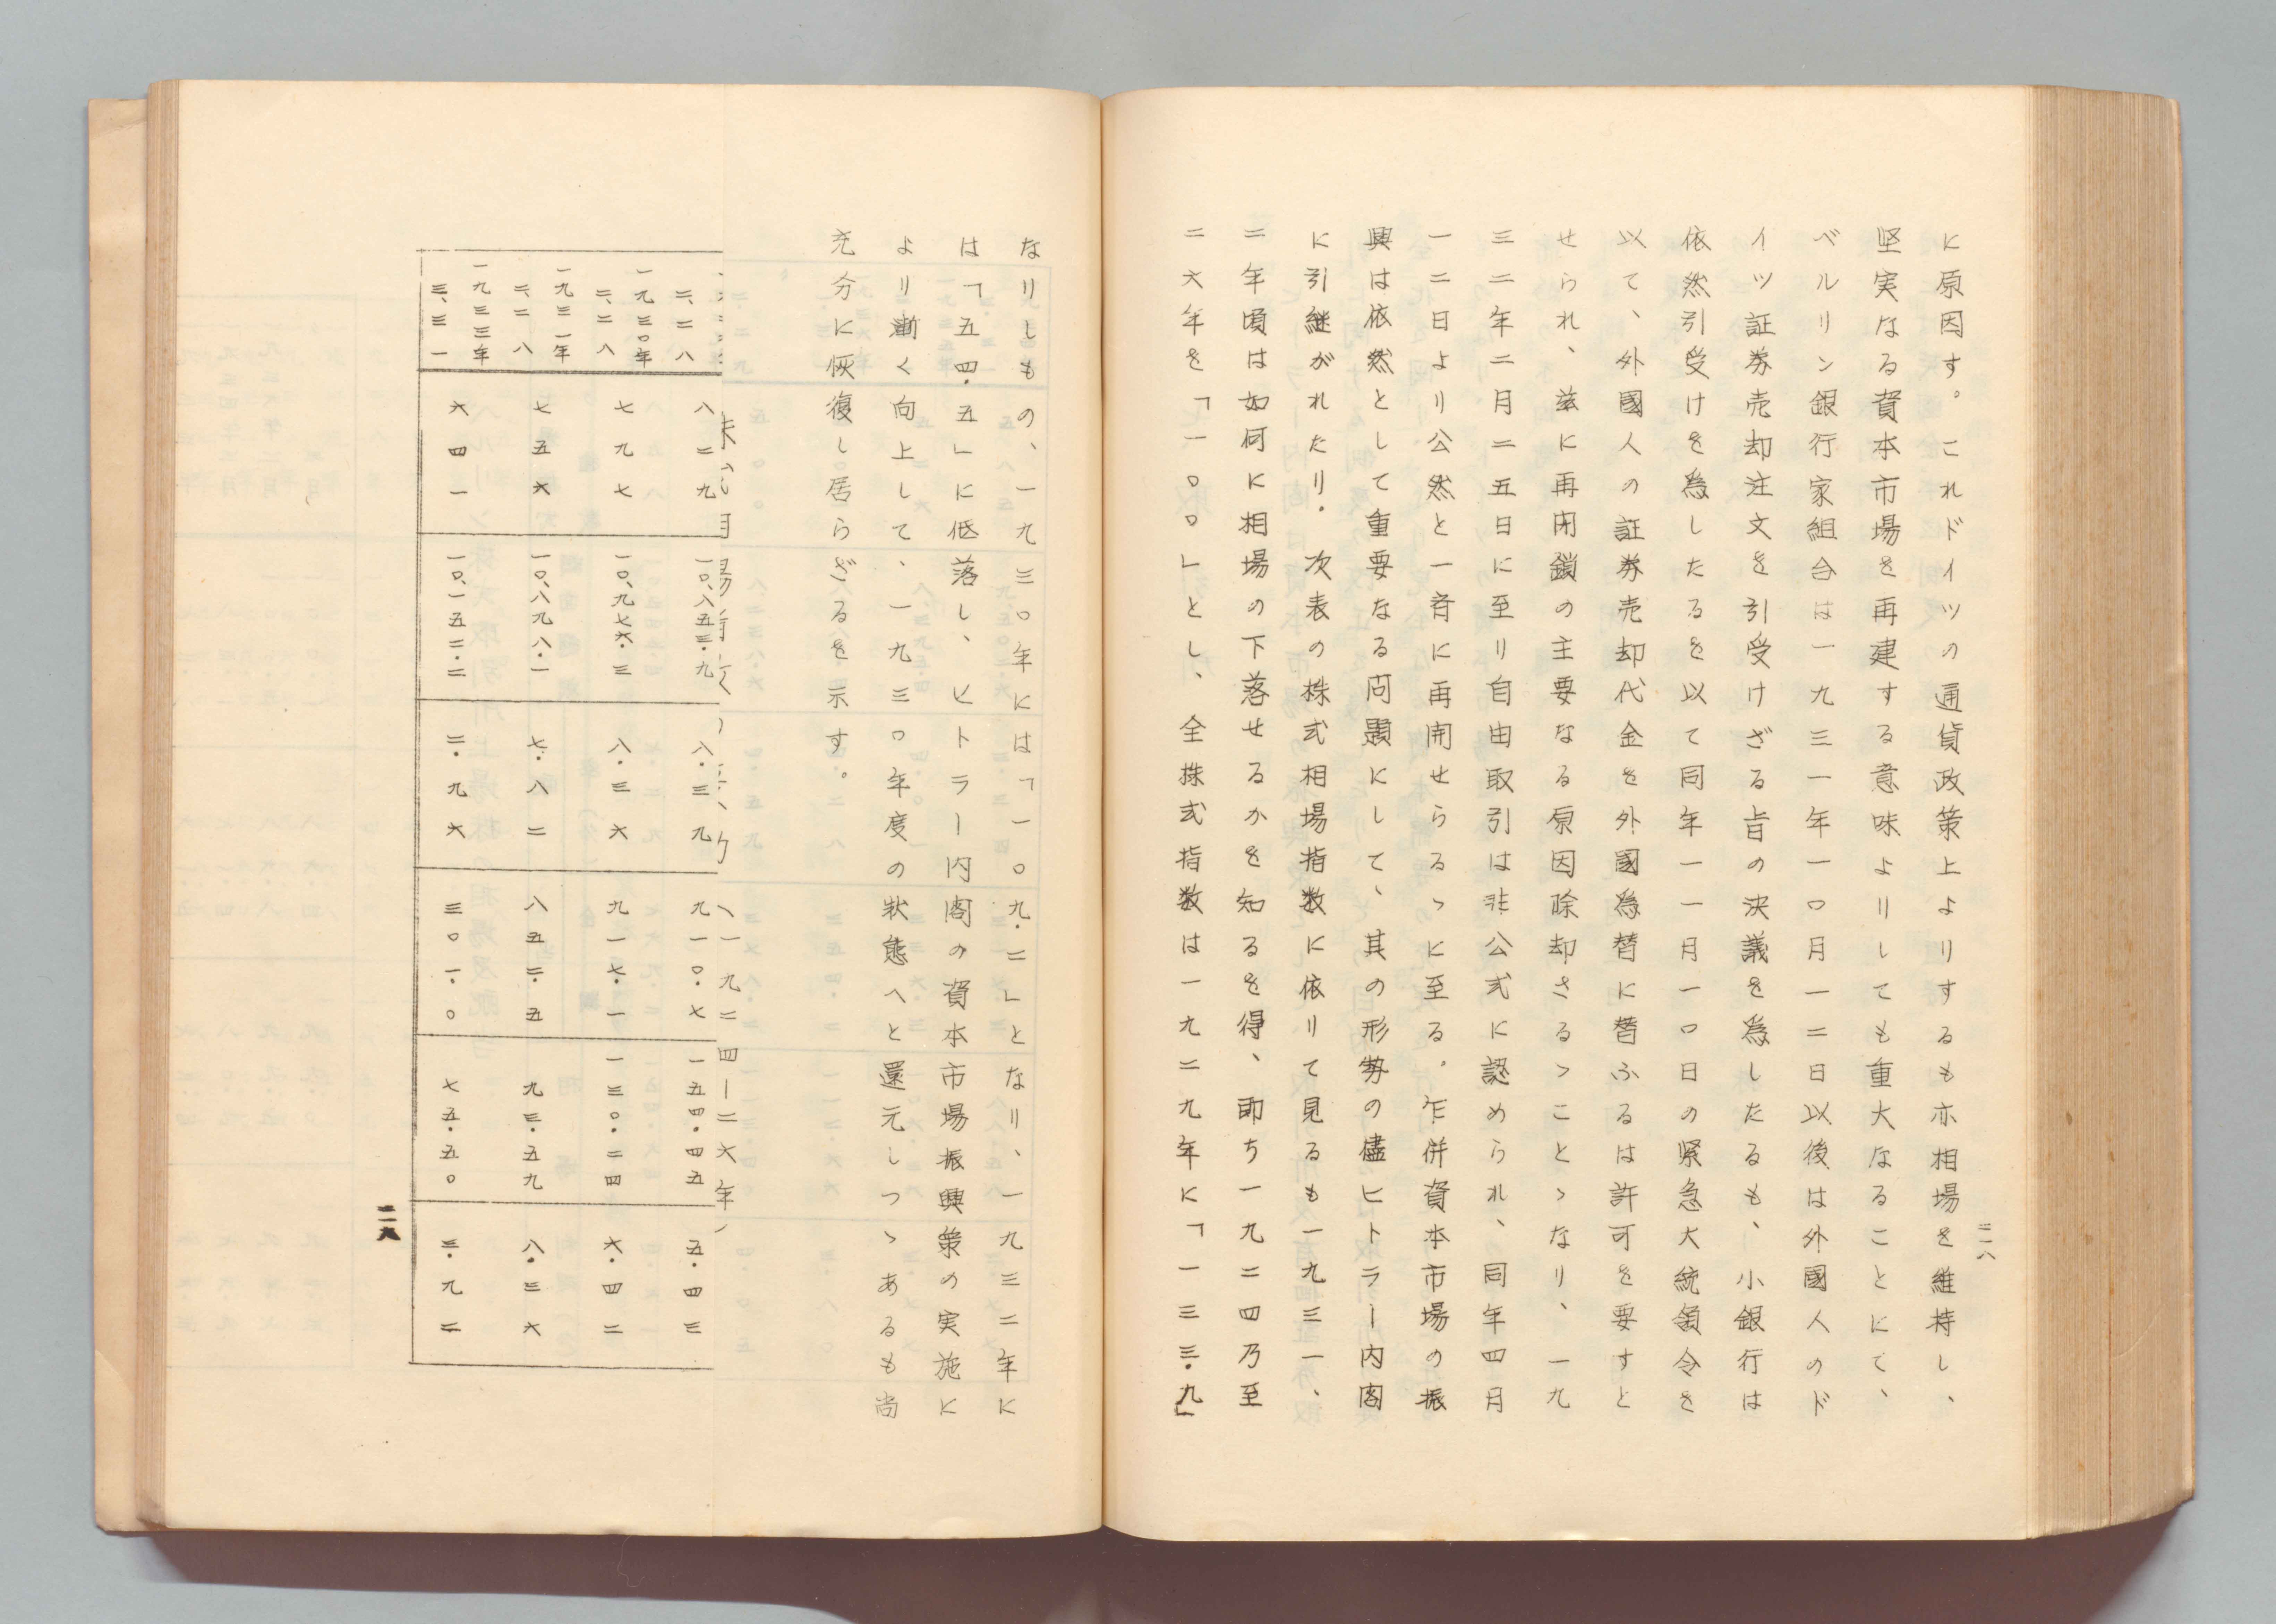 二一八
に原因す。これドイツの通貨政策上よりするも亦相場を維持し、
堅実なる資本市場を再建する意味よりしても重大なることにて、
ベルリン銀行家組合は一九三一年一〇月一二日以後は外國人のド
イツ証券売却注文を引受けざる旨の決議を為したるも、小銀行は
依然引受けを為したるを以て同年一一月一〇日の緊急大統領令を
以て、外國人の証券売却代金を外國為替に替ふるは許可を要すと
せられ、茲に再閉鎖の主要なる原因除却さるゝことゝなり、一九
三二年二月二五日に至り自由取引は非公式に認められ、同年四月
一二日より公然と一斉に再開せらるゝに至る。乍併資本市場の振
興は依然として重要なる問題にして、其の形勢の儘ヒトラー内閣
に引継がれたり。次表の株式相場指数に依りて見るも一九三一、
二年頃は如何に相場の下落せるかを知るを得、即ち一九二四乃至
二六年を「一〇〇」とし、全株式指数は一九二九年に「一三三・九」
なりしもの、一九三〇年には「一〇九・二」となり、一九三二年に
は「五四・五」に低落し、ヒトラー内閣の資本市場振興策の実施に
より漸く向上して、一九三〇年度の状態へと還元しつゝあるも尚
充分に恢復し居らざるを示す。
一九二四―二六年
二、二八 八二九 一〇、八五三・九 八・三九 九一〇・七 一五四・四五 五・四三
一九三〇年
二、二八 七九七 一〇、九七六・三 八・三六 九一七・一 一三〇・二四 六・四二
一九三一年
二、二八 七五六 一〇、八九八・一 七・八二 八五二・五 九三・五九 八・三六
一九三三年
三、三一 六四一 一〇、一五三・二 二・九六 三〇一・〇 七五・五〇 三・九二
二一九